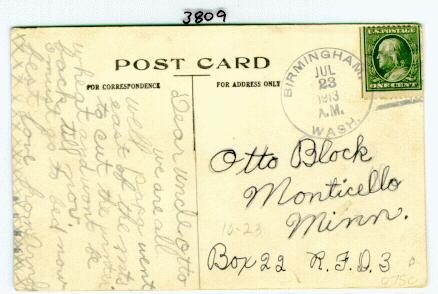 3809
POST CARD
FOR CORRESPONDENCE
FOR ADDRESS ONLY
U.S. POSTAGE
ONE CENT
BIRMINGHAM,
JUL
23
1913
A.M.
WASH.
Dear uncle Otto
we are all
well went
east of the mts.
to cut the
wheat wont be
back till Nov.
I must go to bed now
best love
Otto Block
Monticello
Minn.
10-23
Box 22 R.F.D. 3